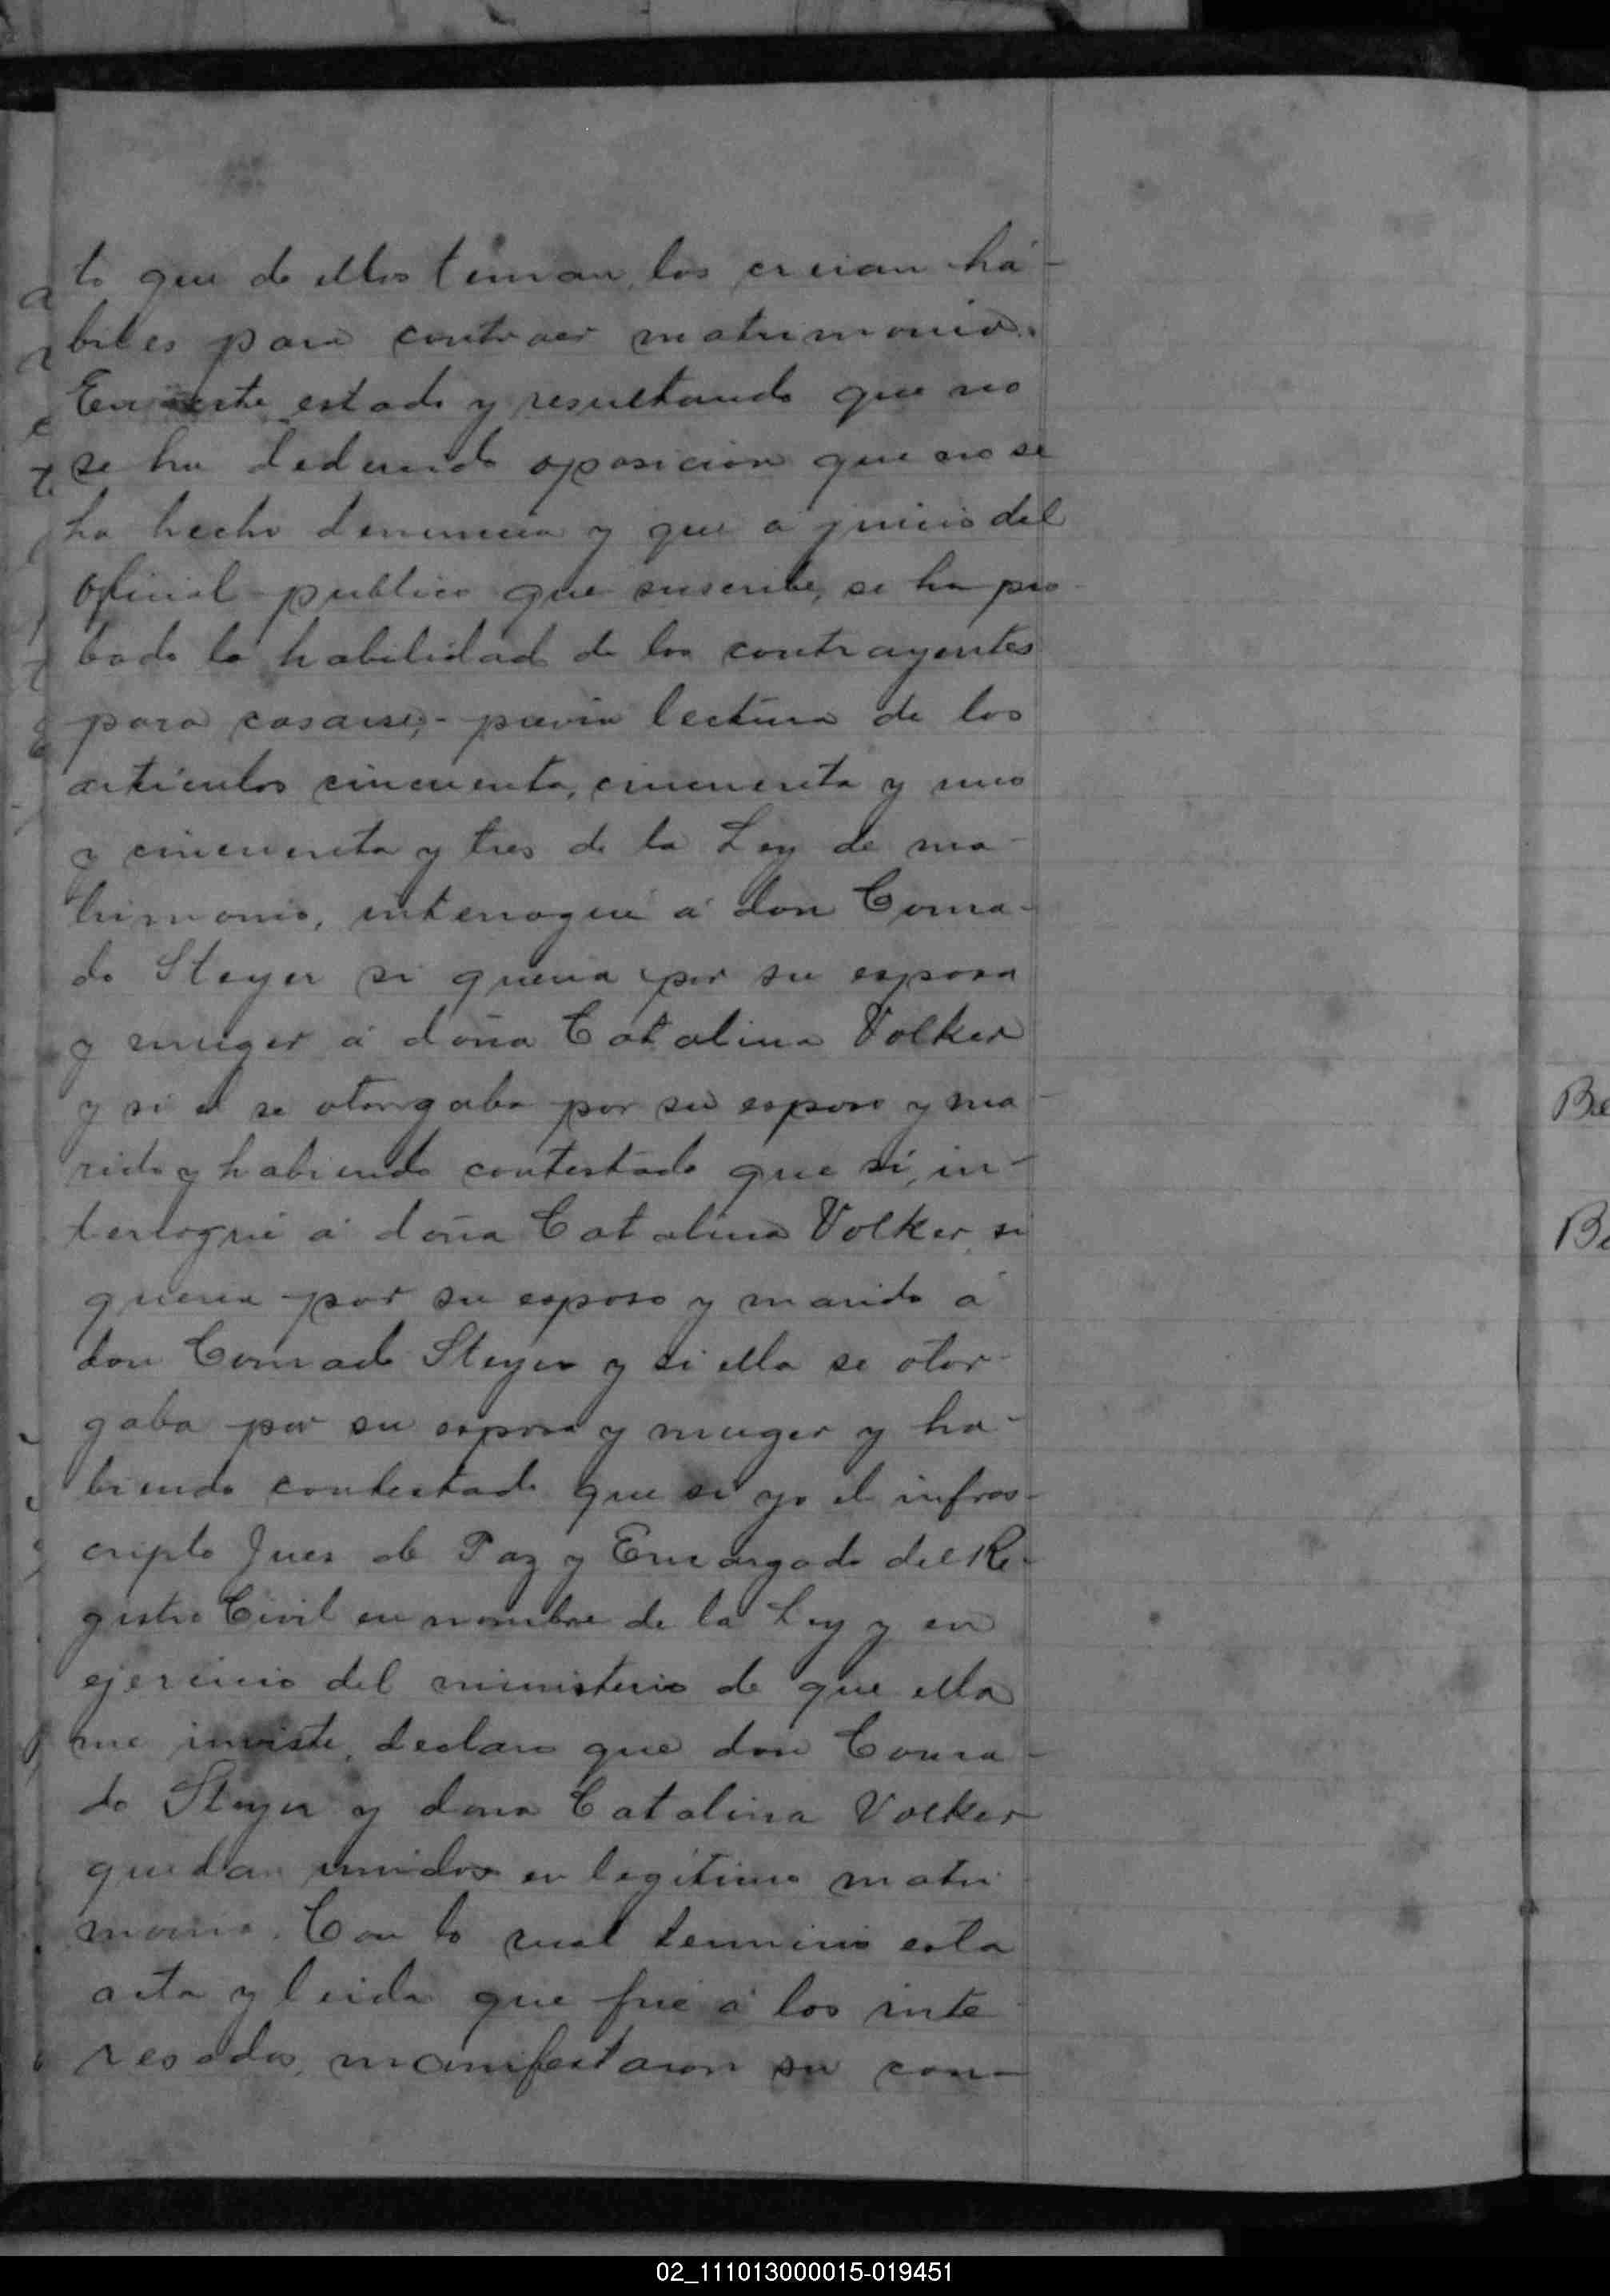 to que de ellos tenian, los creian há-
biles para contraer matrimonio.
En este estado y resultando que no
se ha deducido oposicion que no se
ha hecho denuncia y que a juicio del
oficial publico que suscribe, se ha pro
bado la habilidad de los contrayentes
para casarse,- previa lectura de los
articulos cincuenta, cincuenta y uno
y cincuenta y tres de la Ley de ma-
trimonio, interrogué á don Conra-
do Steyer si queria por su esposa
y muger á doña Catalina Volker
y si el se otorgaba por su esposo y ma-
rido y habiendo contestado que sí, in-
terrogué á doña Catalina Volker, si
queria por su esposo y marido á
don Conrado Steyer y si ella se otor-
gaba por su esposa y muger y ha-
biendo contestado que si yo el infras-
cripto Juez de Paz y Encargado del Re-
gistro Civil en nombre de la Ley y en
ejercicio del ministerio de que ella
me inviste, declaro que don Conra-
do Steyer y dona Catalina Volker
quedan unidos en legitimo matri
monio. Con lo cual termino esta
acta y leida que fué á los inte
resados, manifestaron su con-
Be
Be
02_111013000015-019451